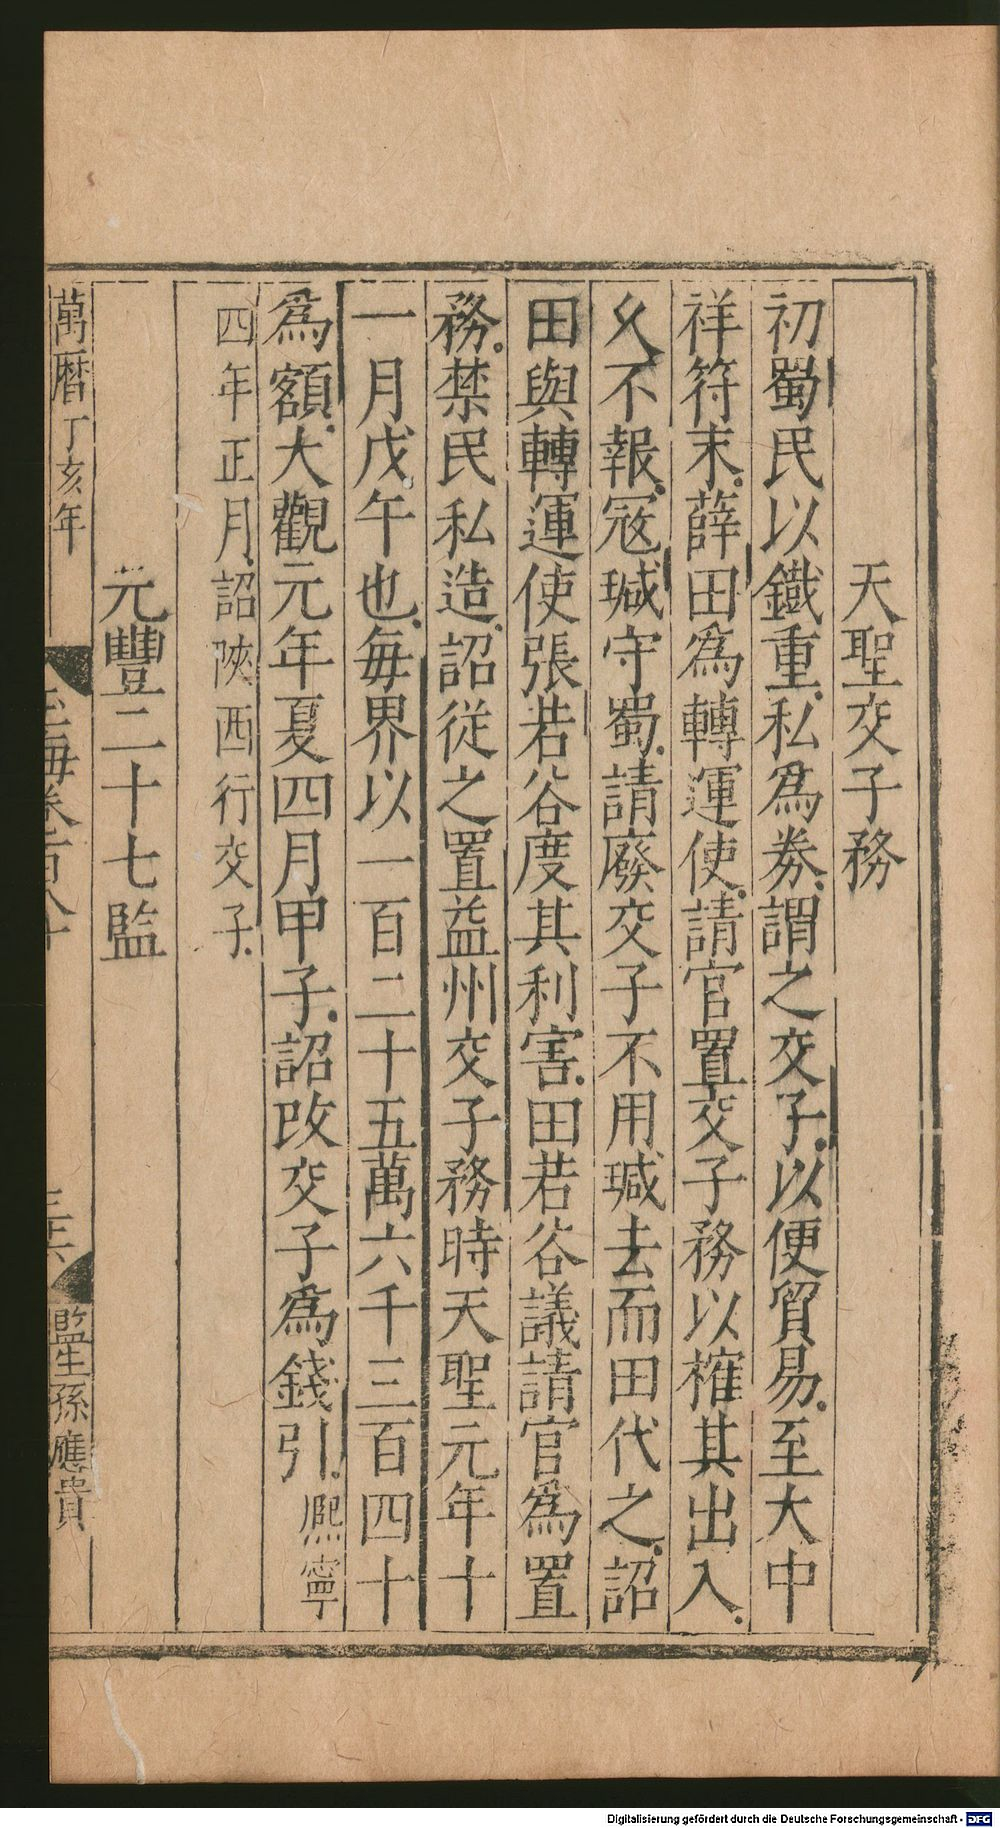 天聖交子務
初蜀民以鐵重私爲券謂之交子以便貿易至大中
祥符末薛田爲轉運使請官置交子務以榷其出入
久不報寇瑊守蜀請廢交子不用瑊去而田代之詔
田與轉運使張若谷度其利害田若谷議請官爲置
務禁民私造詔從之置益州交子務時天聖元年十
一月戊午也每界以一百二十五萬六千三百四十
爲額大觀元年夏四月甲子詔改交子爲錢引熈寧
四年正月詔陝西行交子
元豐二十七監
萬曆丁亥年
玉海卷百八十
監生孫應貴
Digitalisierung gefördert durch die Deutsche Forschungsgemeinschaft - DFG